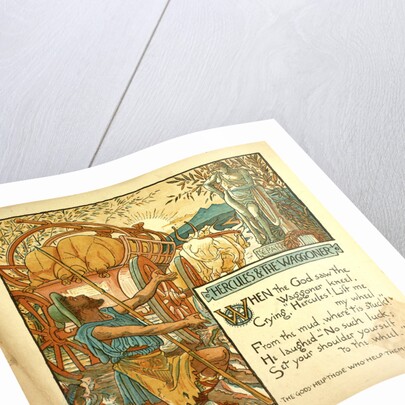 HERCULES & THE WAGGONER
WHEN the God saw the
Waggoner kneel,
Crying, "Hercules! Lift me
my wheel
From the mud, where 'tis stuck!"
He laughed—"No such luck;
Set your shoulder yourself
To the wheel."
THE GODS HELP THOSE WHO HELP THEM